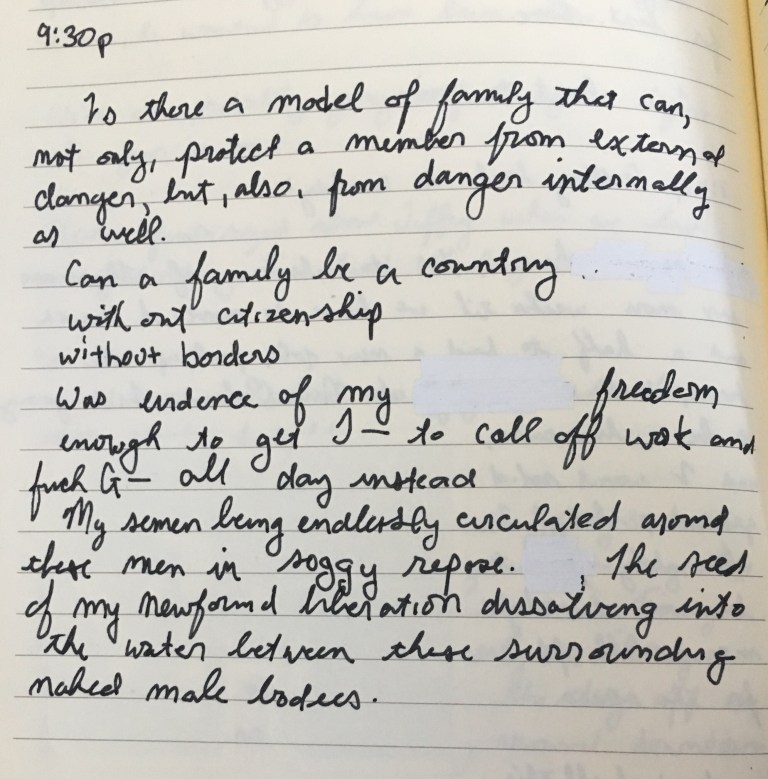 9:30p
Is there a model of family that can,
not only, protect a member from external
danger, but, also, from danger internally
as well.
Can a family be a country
without citizenship
without borders
Was evidence of my freedom
enough to get J— to call off work and
fuck G— all day instead
My semen being endlessly circulated around
these men in soggy repose. The seed
of my newfound liberation dissolving into
the water between these surrounding
naked male bodies.